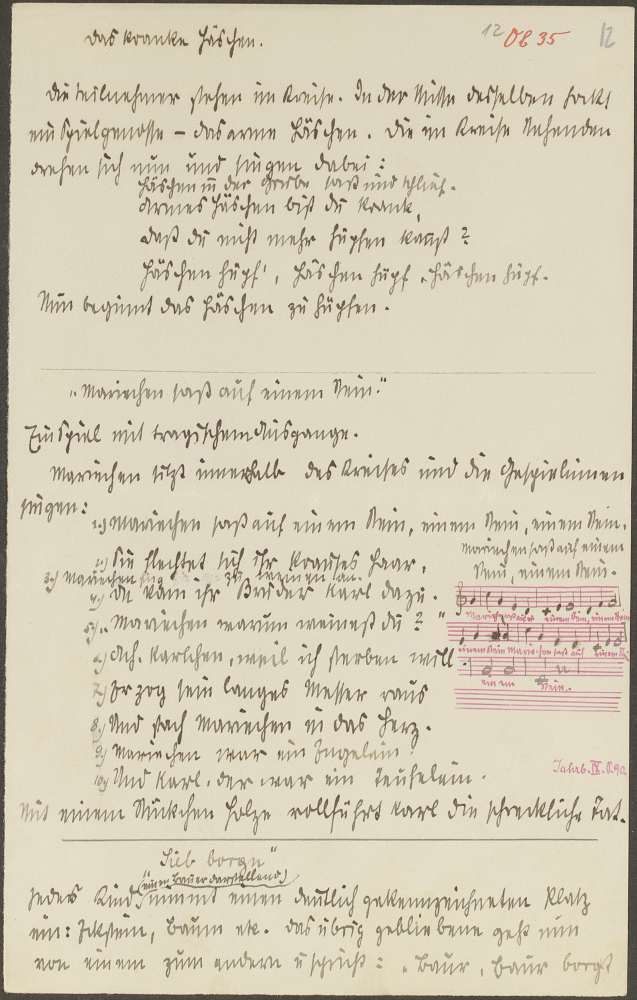 12 OE 35 12
Das kranke Häschen.
Die Teilnehmer stehen im Kreise. In der Mitte desselben hockt
ein Spielgenosse – das arme Häschen. Die im Kreise Stehenden
drehen sich nun und singen dabei:
Häschen in der Grube saß und schlief.
Armes Häschen bist du krank,
daß du nicht mehr hüpfen kannst?
Häschen hüpf', Häschen hüpf, Häschen hüpf.
Nun beginnt das Häschen zu hüpfen.
„Mariechen saß auf einem Stein."
Ein Spiel mit tragischem Ausgange.
Mariechen sitzt innerhalb des Kreises und die Gespielinnen
singen:
1.) Mariechen saß auf einem Stein, einem Stein, einem Stein.
Mariechen saß auf einem
Stein, einem Stein.
2.) Sie flechtet sich ihr krauses Haar.
3.) Mariechen fing zu weinen an.
4.) Da kam ihr Bruder Karl dazu.
5.) „Mariechen warum weinest du?"
6.) Ach, Karlchen, weil ich sterben will
7.) Er zog sein langes Messer raus
8.) Und stach Mariechen in das Herz.
9.) Mariechen war ein Engelein.
10.) Und Karl, der war ein Teufelein.
Mariechen saß auf einem Stein, einem Stein
einem Stein Marie-chen saß auf einem
einem Stein.
Jahrb. IX. S. 90
Mit einem Stückchen Holze vollführt Karl die schreckliche Tat.
„Lieb borgn"
(einen Bauer darstellend)
Jedes Kind nimmt einen deutlich gekennzeichneten Platz
ein: Eckstein, Baum etc. Das übrig gebliebene geht nun
von einem zum andern u spricht: „Baur, Baur borgt